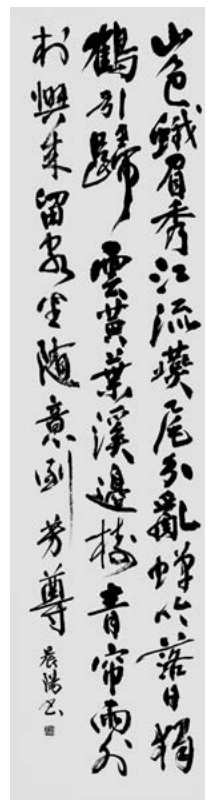 山色蛾眉秀江流燕尾分亂蟬吟落日獨
鶴引歸雲黃葉溪邊樹青帘雨外
村興來留客坐隨意倒芳尊 晨陽书